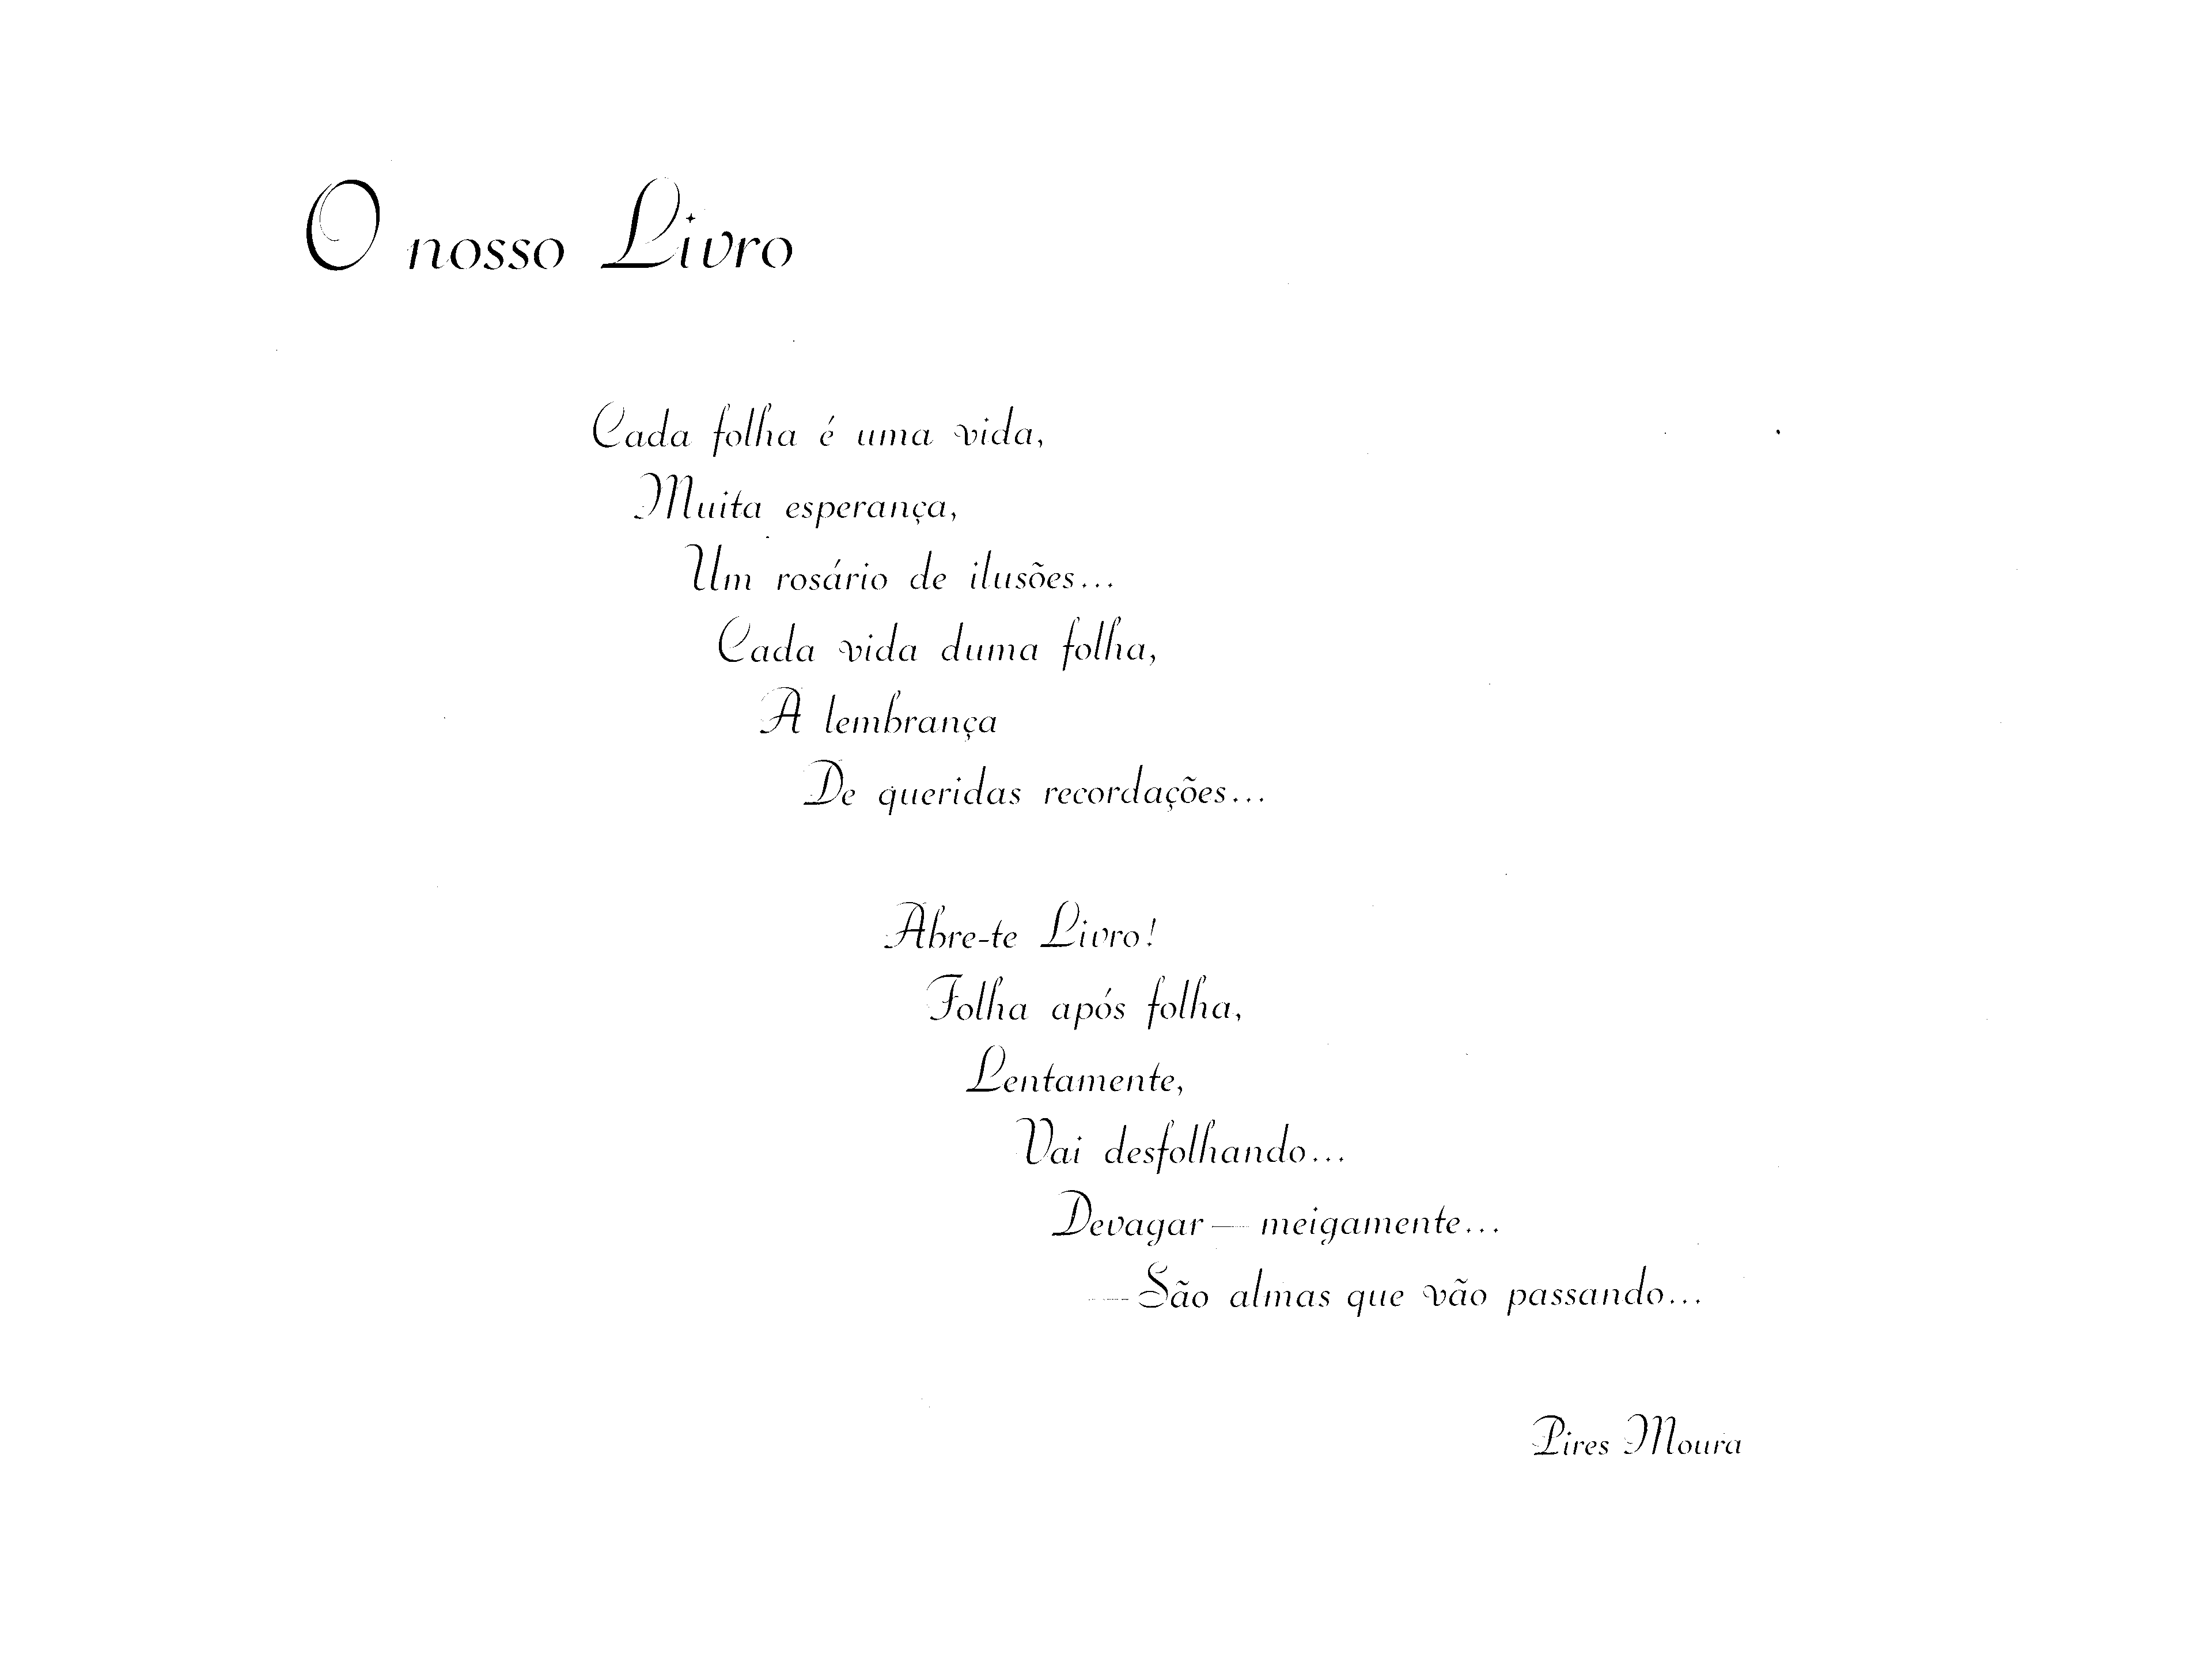 O nosso Livro
Cada folha é uma vida,
Muita esperança,
Um rosário de ilusões...
Cada vida duma folha,
A lembrança
De queridas recordações...
Abre-te Livro!
Folha após folha,
Lentamente,
Vai desfolhando...
Devagar — meigamente...
— São almas que vão passando...
Pires Moura